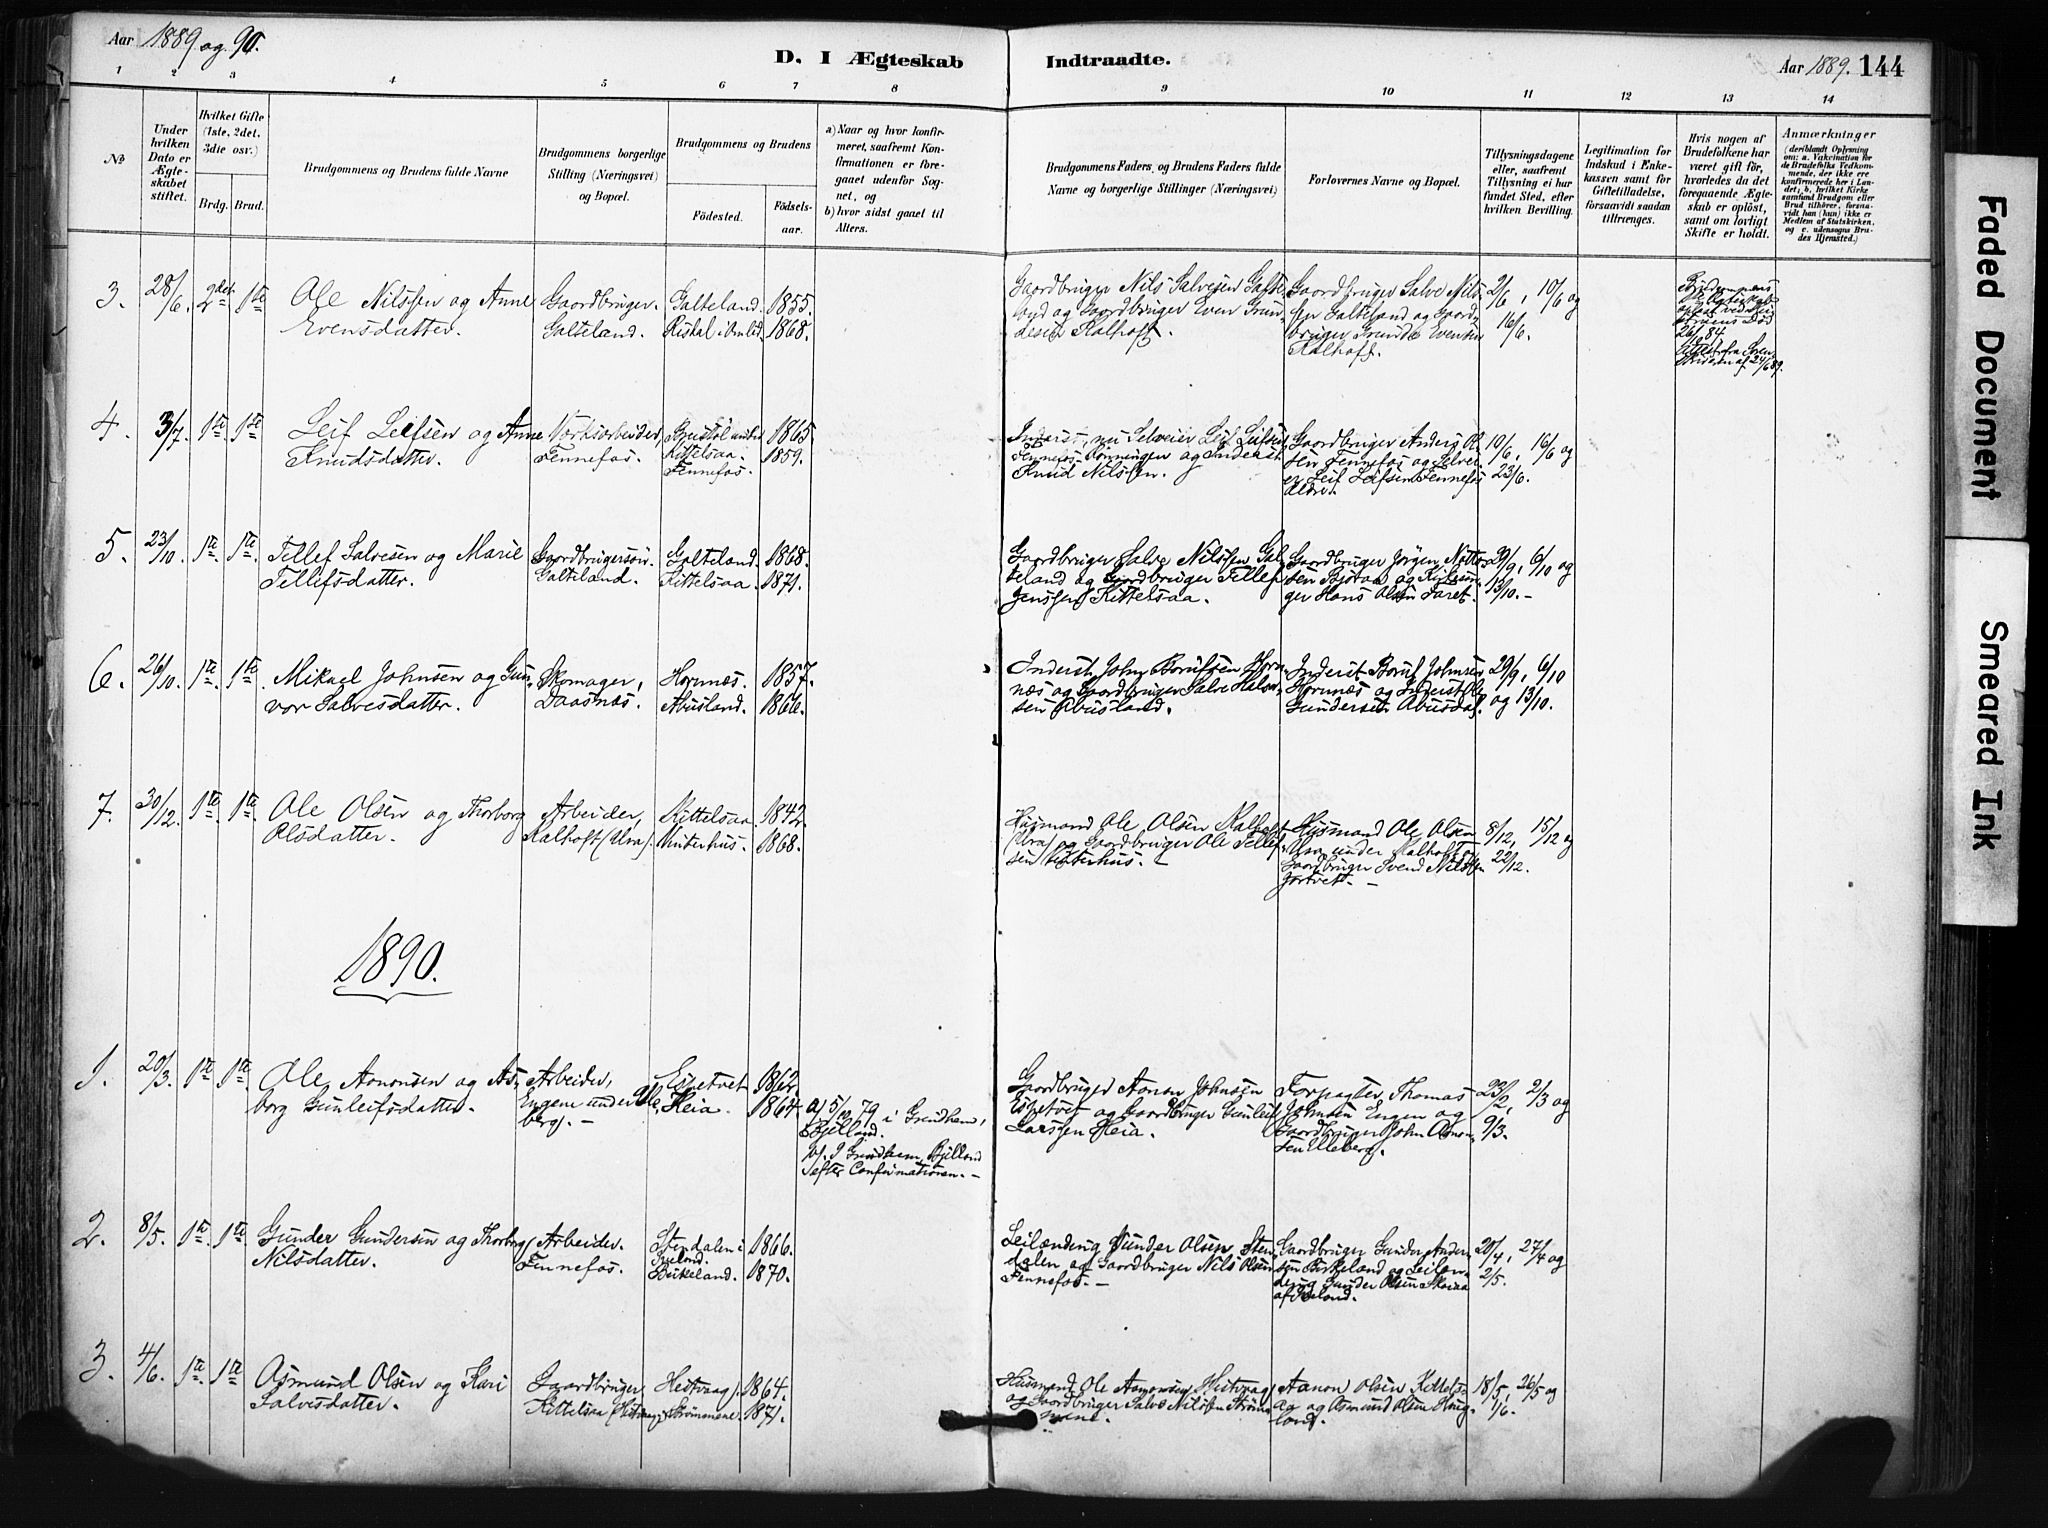 Aar 1889 og 90.
D. I Ægteskab Indtraadte.
Aar 1889. 144
1 2 3 4 5 6 7 8 9 10 11 12 13 14
No
Under hvilken Dato er Ægteskabet stiftet.
Hvilket Gifte (1ste, 2det, 3die osv.)
Brdg. Brud.
Brudgommens og Brudens fulde Navne
Brudgommens borgerlige Stilling (Næringsvei) og Bopæl.
Brudgommens og Brudens
Födested. Födselsaar.
a) Naar og hvor konfirmeret, saafremt Konfirmationen er foregaaet udenfor Sognet, og
b) hvor sidst gaaet til Alters.
Brudgommens Faders, og Brudens Faders fulde Navne og borgerlige Stillinger (Næringsvei)
Forlovernes Navne og Bopæl.
Tillysningsdagene eller, saafremt Tillysning ei har fundet Sted, efter hvilken Bevilling.
Legitimation for Indskud i Enkekassen samt for Giftetilladelse, forsaavidt saadan tiltrænges.
Hvis nogen af Brudefolkene har været gift för, hvorledes da det foregaaende Ægteskab er oplöst, samt om lovligt Skifte er holdt.
Anmærkninger (deriblandt Oplysning om: a. Vakcination for de Brudefolks Vedkommende, der ikke ere konfirmerede her i Landet; b. hvilket Kirkesamfund Brudgom eller Brud tilhörer, forsaavidt han (hun) ikke er Medlem af Statskirken, og c. udensogns Brudes Hjemsted.)
3. 28/6. 2det 1ste Ole Nilssen og Anne Evensdatter. Gaardbruger. Galteland. Galteland. 1855. 1868.
Gaardbruger Nils Salvesen og Gaardbruger Even Kalhoft.
Gaardbruger Salve Galteland og Gaardbruger Evensen Kalhoft.
2/6, 10/6 og 16/6.
4. 3/7. 1ste 1ste Leif Leifsen og Anne Knudsdatter. Fennefos. Fennefos. 1865 1859.
Inderst, nu Selveier Leif Leifsen, Fennefos og Inderst Knud Nilssen.
Gaardbruger Anders Olsen Fennefos og Leif Leifsen Fennefos
10/6, 16/6 og 23/6.
5. 23/10. 1ste 1ste Tellef Salvesen og Marie Tellefsdatter. Gaardbrugersön. Galteland. Galteland. Kittelsaa. 1868. 1871.
Gaardbruger Salve Nilssen Galteland og Gaardbruger Tellef Jenssen Kittelsaa.
Gaardbruger Jörgen og Hans Olsen Faret.
29/9, 6/10 og 13/10.-
6. 26/10. 1ste 1ste Mikael Johnsen og Gunvor Salvesdatter. Skomager, Daasnæs. Hornnæs. Abusland. 1857. 1866.
Inderst John Hornnæs og Gaardbruger Salve Abusland.
Inderst Johnsen Hornnæs og Inderst Ole Gundersen Abusdal.
29/9, 6/10 og 13/10.
7. 30/12. 1ste 1ste Ole Olsen og Thorborg Olsdatter. Arbeider, Kalhoft (Ura). Kittelsaa. Vinterhus. 1842. 1868.
Husmand Ole Olsen Kalhoft (Ura) og Gaardbruger Ole Tellefsen Vinterhus. -
Husmand Ole Olsen Ura under Kalhoft og Gaardbruger Svend Nilssen
8/12, 15/12 og 22/12.
1890.
1. 20/3. 1ste 1ste Ole Aanonsen og Asborg Gunleifsdatter. Arbeider, Engene under Uleberg. - Espetvet Heia. 1862. 1864.
a) 5/10 79 i Grindhem, Bjelland.
b). I Grindhem, Bjelland efter Confirmationen. -
Gaardbruger Aanon Johnsen Espetvet og Gaardbruger Gunleif Larssen Heia.
Forpagter Thomas Johnsen Engen og Gaardbruger John Uleberg.
23/2, 2/3 og 9/3.
2. 8/5. 1ste 1ste Gunder Gundersen og Thorborg Nilsdatter. Arbeider. Fennefos. Stendalen i Birkeland. 1866. 1870.
Leilænding Gunder Olsen Stendalen og Gaardbruger Nils Olsen Fennefos. -
Gaardbruger Gunder Andersen Birkeland og Leilænding Gunder Olsen
20/4, 27/4 og 2/5.
3. 4/6. 1ste 1ste Asmund Olsen og Kari Salvesdatter. Gaardbruger, Kittelsaa Hestvaag. Strömmene. 1864. 1871.
Husmand Ole Aanonsen Hestvaag og Gaardbruger Salve Nilssen Strömmene.
Aanon Olsen Kittelsaa og Asmund Olsen
18/5, 26/5 og 1/6.
Faded Document
Smeared Ink